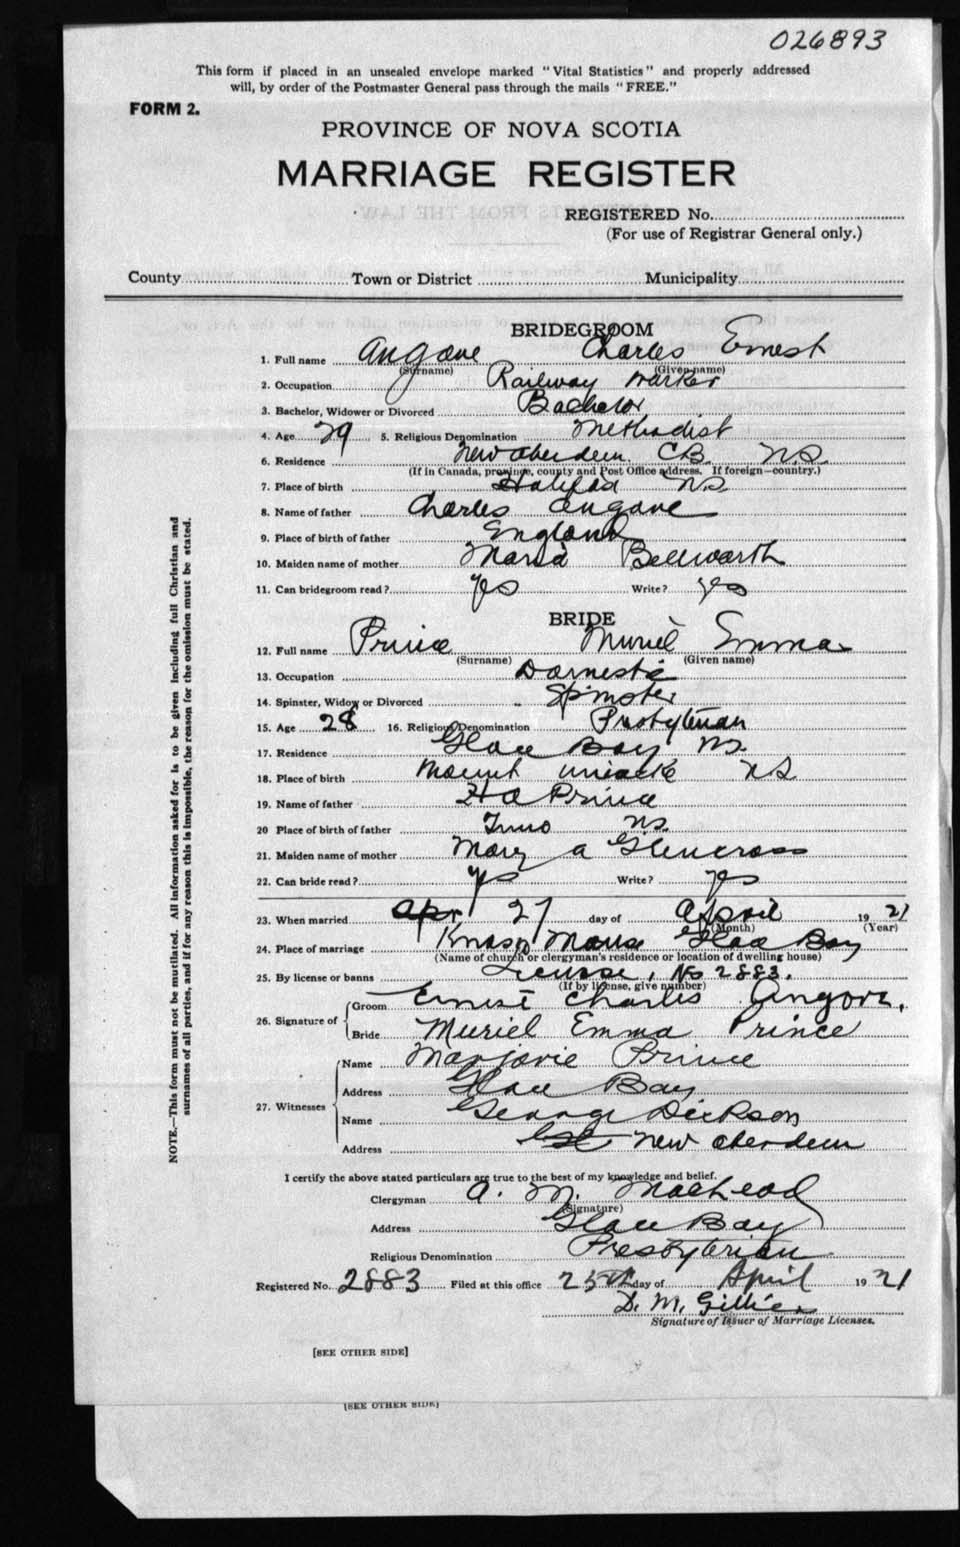 026893
This form if placed in an unsealed envelope marked "Vital Statistics" and properly addressed
will, by order of the Postmaster General pass through the mails "FREE."
FORM 2.
PROVINCE OF NOVA SCOTIA
MARRIAGE REGISTER
REGISTERED No.
(For use of Registrar General only.)
County Town or District Municipality
BRIDEGROOM
1. Full name Angove Charles Ernest
(Surname) (Given name)
2. Occupation Railway worker
3. Bachelor, Widower or Divorced Bachelor
4. Age 29 5. Religious Denomination Methodist
6. Residence New Aberdeen C.B. N.S.
(If in Canada, province, county and Post Office address. If foreign—country.)
7. Place of birth Halifax N.S.
8. Name of father Charles Angove
9. Place of birth of father England
10. Maiden name of mother Maria Bellworth
11. Can bridegroom read? yes Write? yes
BRIDE
12. Full name Prince Muriel Emma
(Surname) (Given name)
13. Occupation Domestic
14. Spinster, Widow or Divorced Spinster
15. Age 28 16. Religious Denomination Presbyterian
17. Residence Glace Bay NS.
18. Place of birth Mount Uniacke NS
19. Name of father H A Prince
20 Place of birth of father Truro NS.
21. Maiden name of mother Mary A Glencross
22. Can bride read? yes Write? yes
23. When married Apr 27 day of April 1921
(Month) (Year)
24. Place of marriage Knox Manse Glace Bay
(Name of church or clergyman's residence or location of dwelling house)
25. By license or banns License, No 2883.
(If by license, give number)
26. Signature of Groom Ernest Charles Angove.
Bride Muriel Emma Prince
27. Witnesses Name Marjorie Prince
Address Glace Bay
Name George Dickson
Address New Aberdeen
I certify the above stated particulars are true to the best of my knowledge and belief.
Clergyman A. M. MacLeod
(Signature)
Address Glace Bay
Religious Denomination Presbyterian
Registered No. 2883 Filed at this office 25th day of April 1921
D. M. Gillies
Signature of Issuer of Marriage Licenses.
[SEE OTHER SIDE]
[SEE OTHER SIDE]
NOTE.—This form must not be mutilated. All information asked for is to be given including full Christian and
surnames of all parties, and if for any reason this is impossible, the reason for the omission must be stated.